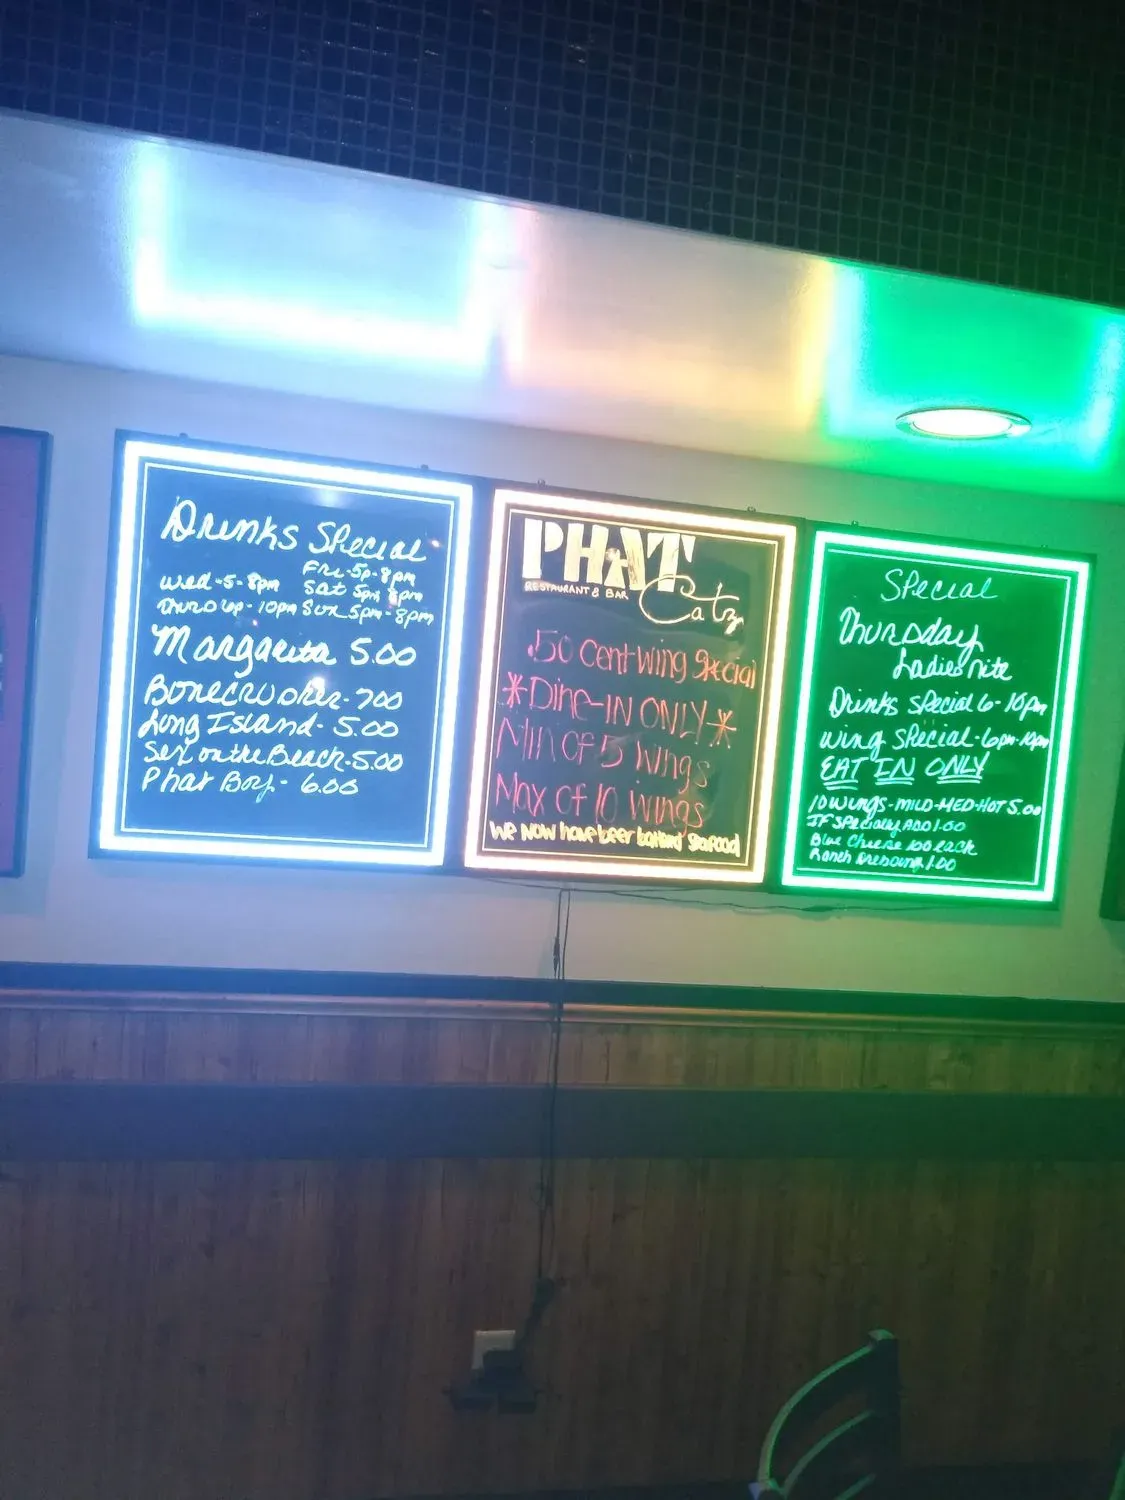 Drinks Special
Fri-5p-8pm
Wed-5-8pm Sat 5pm 8pm
Thur 6p-10pm Sun 5pm-8pm
Margarita 5.00
Bonecrusher-7.00
Long Island-5.00
Sex on the Beach-5.00
Phat Boy-6.00
PHAT
RESTAURANT & BAR
Catz
.50 Cent wing Special
*Dine-IN ONLY*
Min of 5 Wings
Max of 10 Wings
We Now have beer battered Seafood
Special
Thursday
Ladies Nite
Drinks special 6-10pm
Wing Special-6pm-10pm
EAT IN ONLY
10 wings-MILD-MED-HOT 5.00
IF Specialty ADD 1.00
Blue Cheese 1.00 each
Ranch Dressing 1.00